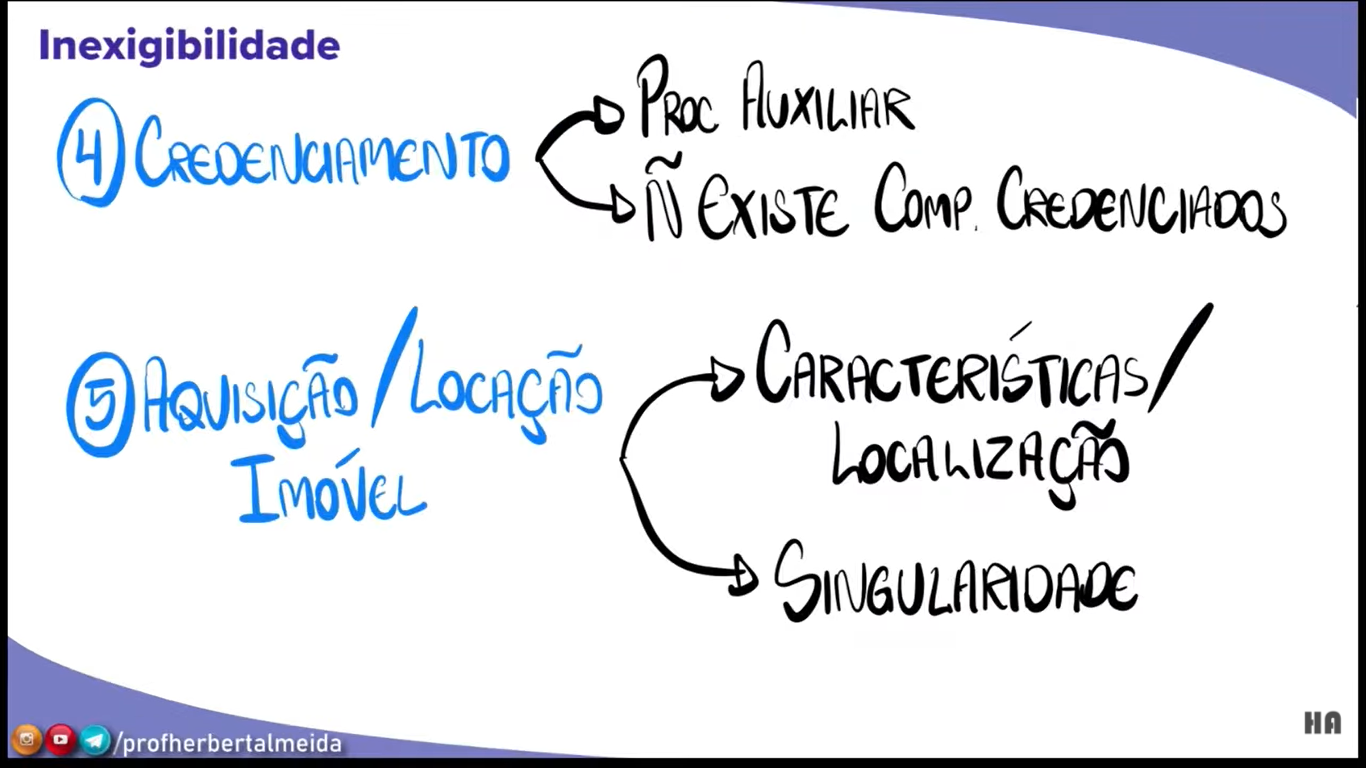 Inexigibilidade
4 CREDENCIAMENTO
PROC AUXILIAR
Ñ EXISTE COMP. CREDENCIADOS
5 AQUISIÇÃO/LOCAÇÃO
IMÓVEL
CARACTERÍSTICAS/
LOCALIZAÇÃO
SINGULARIDADE
/profherbertalmeida
HA